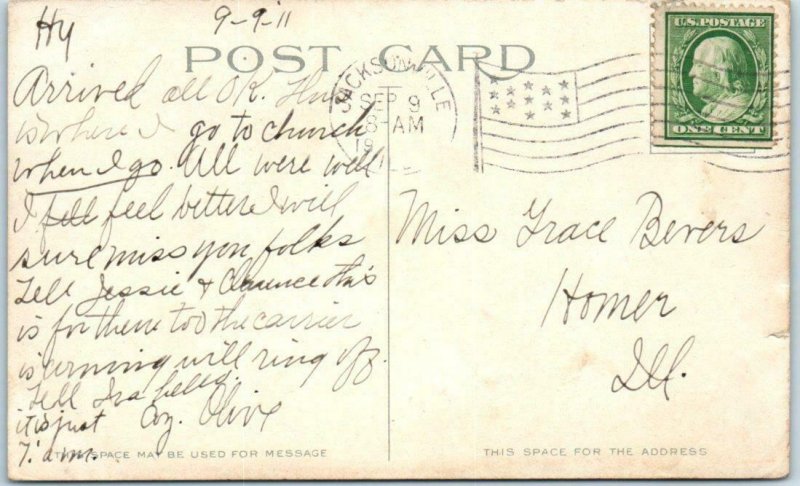 Hy 9-9-11
POST CARD
U.S. POSTAGE
ONE CENT
JACKSONVILLE
SEP 9
8 AM
Arrived all O.K. This
is where I go to church
when I go. All were well
I fell feel better & will
sure miss you folks
Tell Jessie & Clarence this
is for them too the carrier
is coming will ring off.
Tell Ira hello.
it is just Coz. Olive
7. a.m.
THIS SPACE MAY BE USED FOR MESSAGE
Miss Grace Bevers
Homer
Ill.
THIS SPACE FOR THE ADDRESS